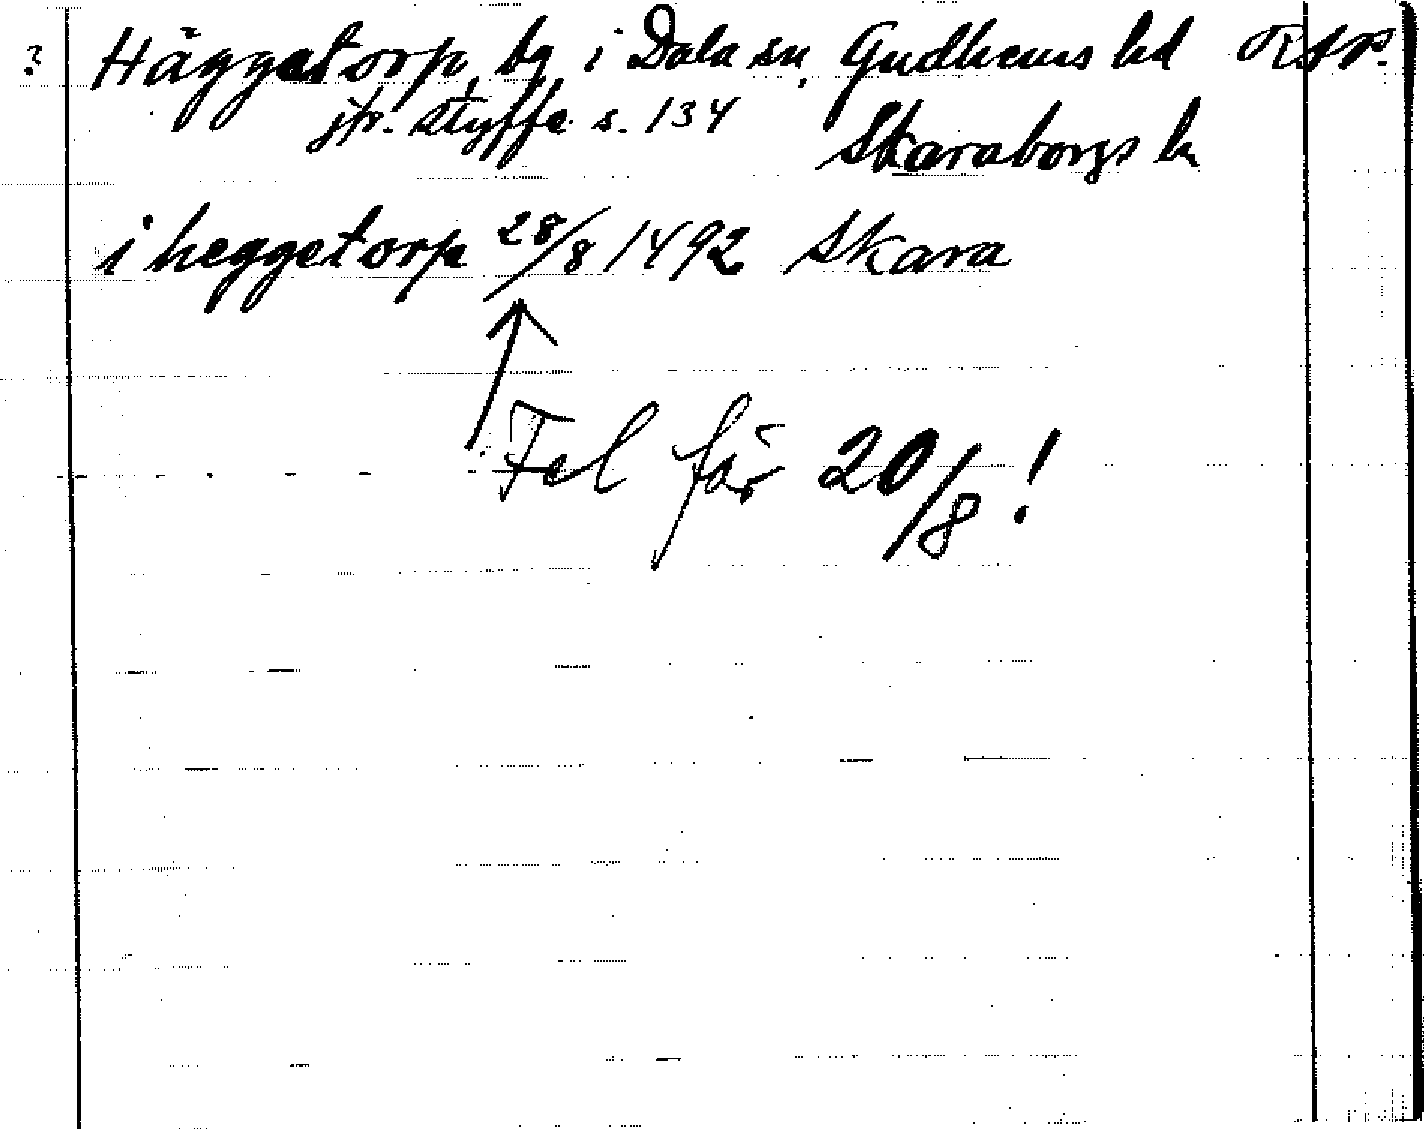 ? Häggatorp, by i Dala sn, Gudhems hd RAP.
jfr. Styffe s. 134 Skaraborgs ln
i heggetorp 28/8 1492 Skara
Fel för 20/8!